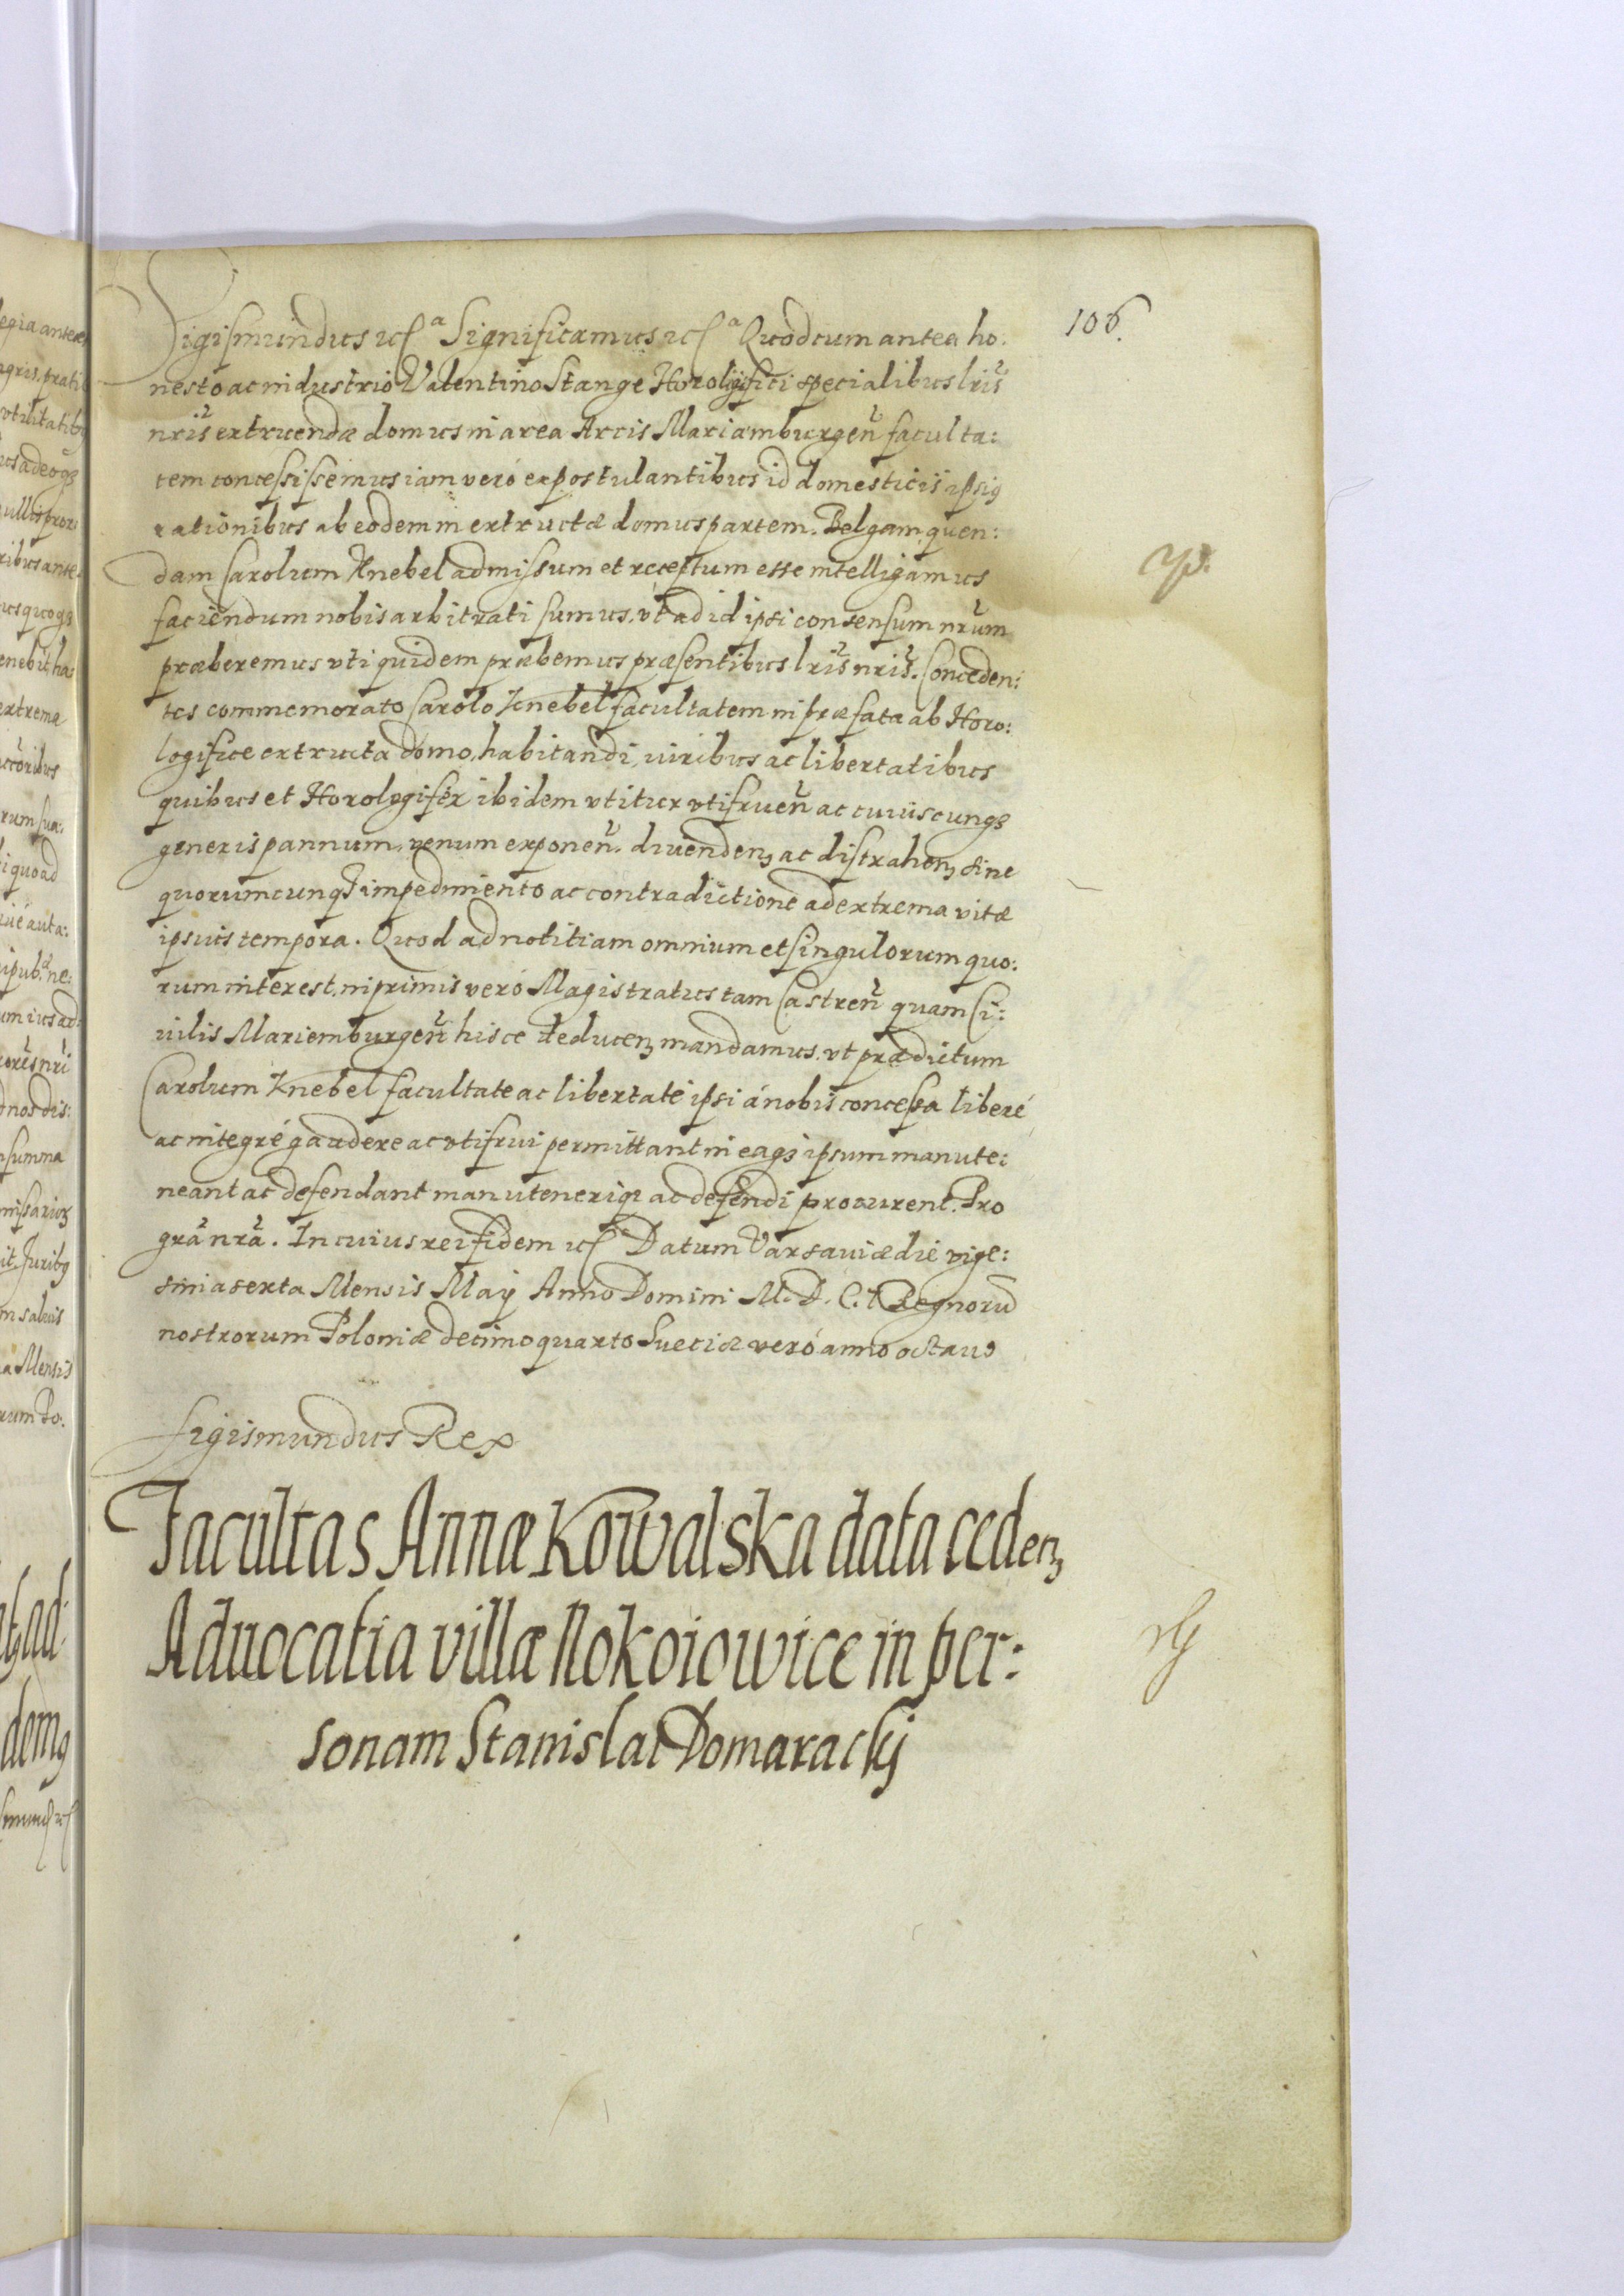 106.
Sigismundus etc a Significamus etc a Quod cum antea ho:
nesto ac industrio Valentino Stange Horologifici specialibus lris
nris extruendæ domus in area Arcis Mariæmburgeñ faculta:
tem concessissemus iam veró expostulantibus id domesticis ipsiꝰ
rationibus ab eodem in extructæ domus partem. Belgam quen:
dam Carolum Knebel admissum et receptum esse intelligamus
faciendum nobis arbitrati sumus, vt ad id ipsi consensum nrum
præberemus vti quidem præbemus præsentibus lris nris. Conceden:
tes commemorato Carolo Knebel facultatem in præfata ab Horo:
logifice extructa domo, habitandi, iuribus ac libertatibus
quibus et Horologifex ibidem vtitur vtifrueñ ac cuiuscunqꝫ
generis pannum, venum exponeñ. diuendenꝫ ac distrahenꝫ sine
quorumcunqꝫ impedimento ac contradictione ad extrema vitæ
ipsius tempora. Quod ad notitiam omnium et singulorum quo:
rum interest, inprimis veró Magistratus tam Castreñ quam Ci:
uilis Mariemburgeñ hisce deducenꝫ mandamus. vt prædictum
Carolum Knebel facultate ac libertate ipsi á nobis concessa liberé
ac integré gaudere ac vtifrui permittant in eaqꝫ ipsum manute:
neant ac defendant manuteneriqꝫ ac defendi procurent. Pro
gra nra. In cuius rei fidem etc Datum Varsauiæ die vige:
sima sexta Mensis Maÿ Anno Domini M. D. C. I. Regnorũ
nostrorum Poloniæ decimo quarto Sueciæ veró anno octauo
Sigismundus Rex
Facultas Annæ Kowalska data cedenꝫ
Aduocatia villæ Nokoiowice in per:
sonam Stanislai Domaracki